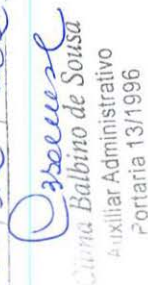 Balbino de Sousa
Auxiliar Administrativo
Portaria 13/1996